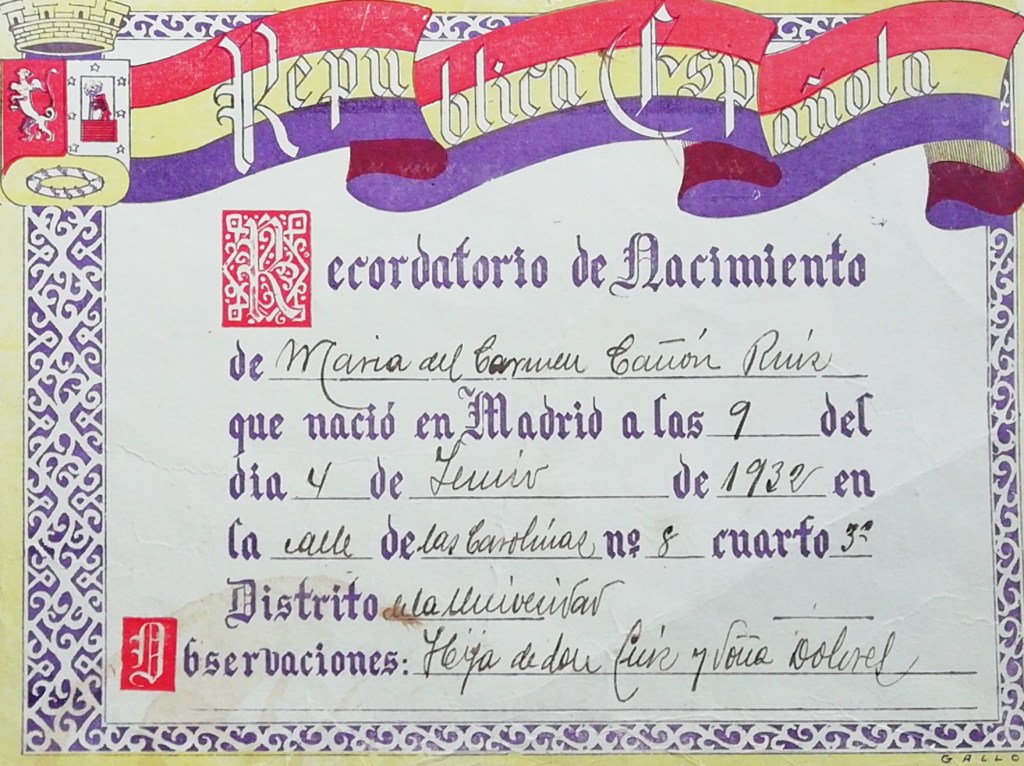 República Española
Recordatorio de Nacimiento
de Maria del Carmen Cañón Ruiz
que nació en Madrid a las 9 del
día 4 de Junio de 1932 en
la calle de las Carolinas nº 8 cuarto 3º
Distrito de la Universidad
Observaciones: Hija de don Luis y Doña Dolores
GALLO